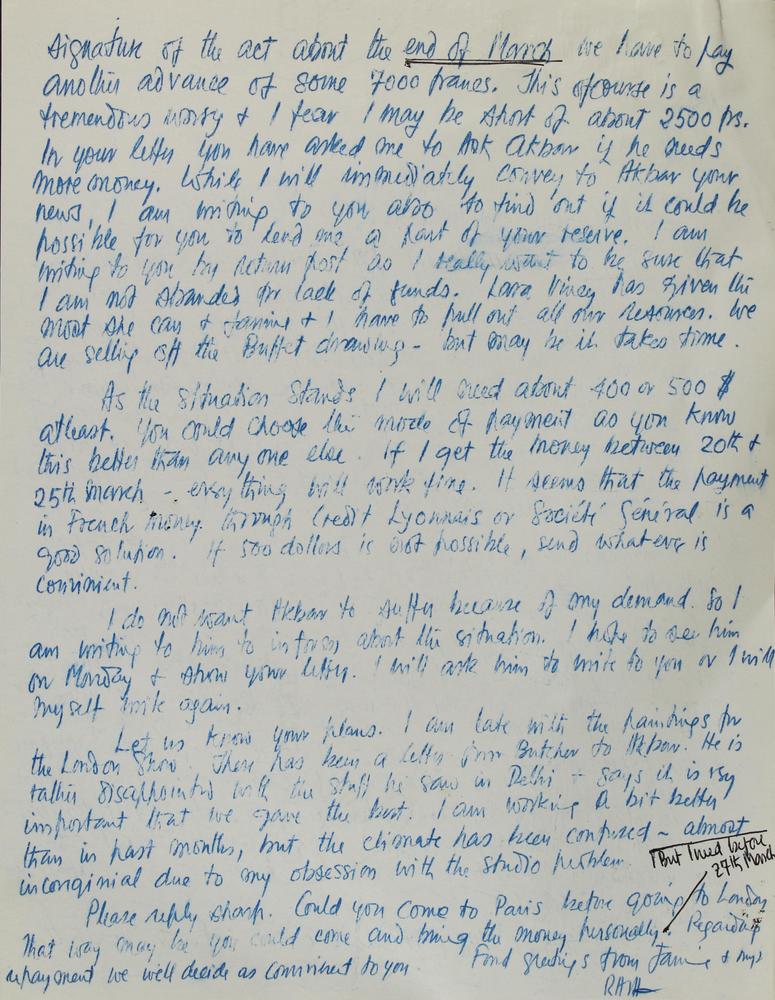 signature of the act about the end of March we have to pay
another advance of some 7000 francs. This ofcourse is a
tremendous worry & I fear I may be short of about 2500 frs.
In your letter you have asked me to Ask Akbar if he needs
more money. While I will immediately convey to Akbar your
news, I am writing to you also to find out if it could be
possible for you to lend me a part of your reserve. I am
writing to you by return post as I really want to be sure that
I am not stranded for lack of funds. Lara Vincy has given the
most she can & Janine & I have to pull out all our resources. We
are selling off the Buffet drawing - but may be it takes time.
As the situation stands I will need about 400 or 500 $
atleast. You could choose the mode of payment as you know
this better than any one else. If I get the money between 20th &
25th March - everything will work fine. It seems that the payment
in French money through Credit Lyonnais or Société Général is a
good solution. If 500 dollars is not possible, send whatever is
convinient.
I do not want Akbar to suffer because of my demand. So I
am writing to him to inform about the situation. I hope to see him
on Monday & show your letter. I will ask him to write to you or I will
myself write again.
Let us know your plans. I am late with the paintings for
the London Show. There has been a letter from Butcher to Akbar. He is
rather disappointed with the stuff he saw in Delhi & says it is very
important that we gave the best. I am working a bit better
than in past months, but the climate has been confused - almost
inconginial due to my obsession with the studio problem.
But I need before
27th March
Please reply sharp. Could you come to Paris before going to London
That way may be you could come and bring the money personally. Regarding
repayment we well decide as convinient to you. Fond greetings from Janine & mys
RAZA